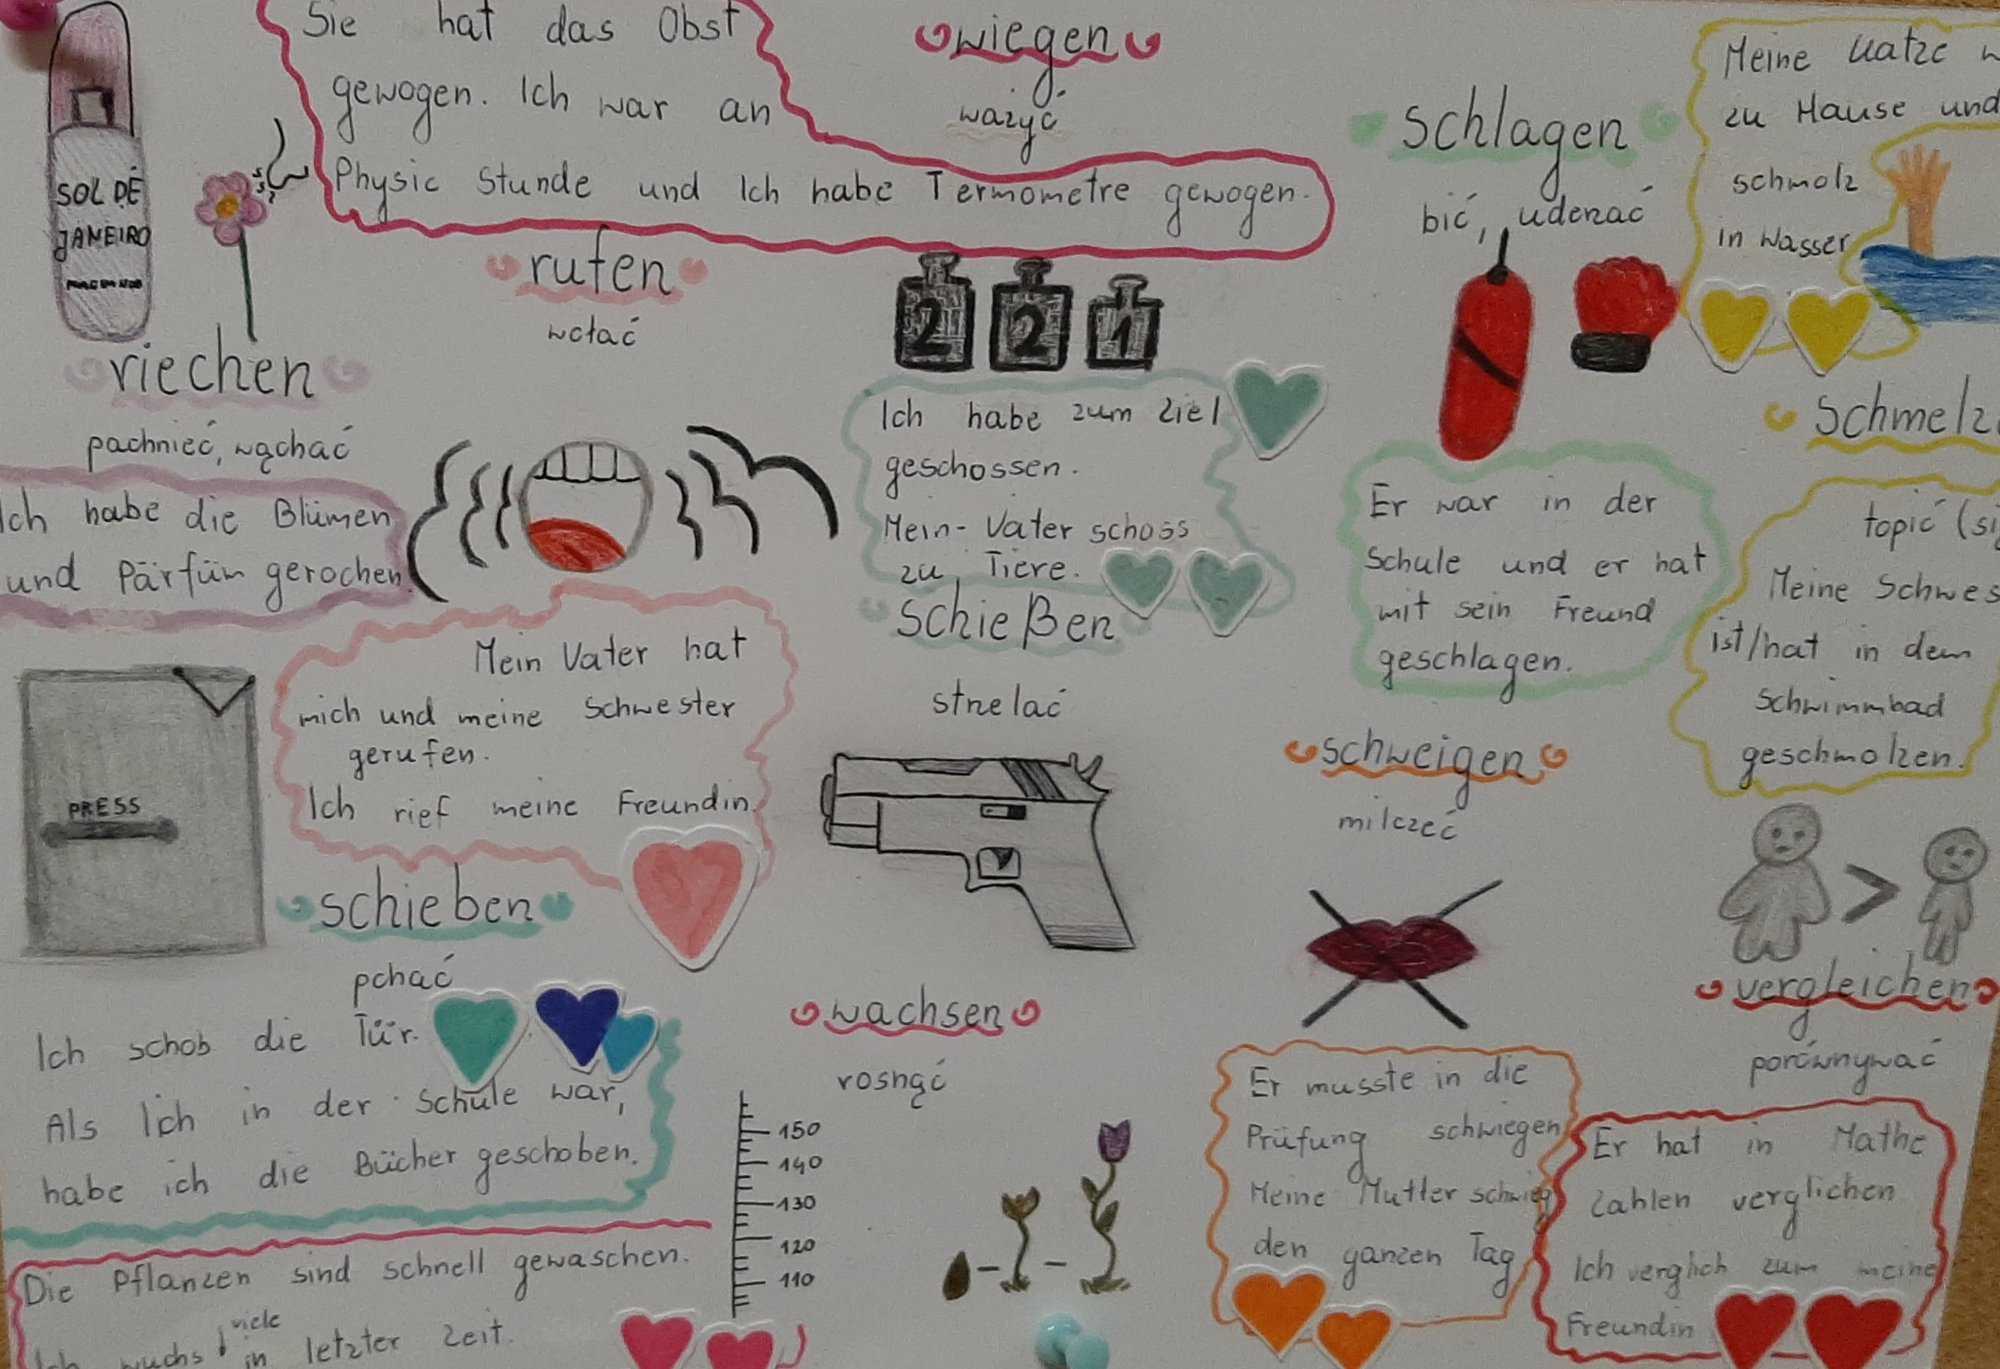 SOL DE
JANEIRO
riechen
pachnieć, wąchać
Ich habe die Blümen
und Pärfüm gerochen
Sie hat das Obst
gewogen. Ich war an
Physic Stunde und Ich habe Termometre gewogen.
wiegen
ważyć
2 2 1
rufen
wołać
Mein Vater hat
mich und meine Schwester
gerufen.
Ich rief meine Freundin.
Ich habe zum Ziel
geschossen.
Mein Vater schoss
zu Tiere.
schießen
strzelać
schlagen
bić, uderzać
Er war in der
Schule und er hat
mit sein Freund
geschlagen.
Meine Katze
zu Hause und
schmolz
in Wasser
schmelz
topić
Meine Schwes
ist/hat in dem
Schwimmbad
geschmolzen.
PRESS
schieben
pchać
Ich schob die Tür.
Als Ich in der Schule war,
habe ich die Bücher geschoben.
wachsen
rosnąć
150
140
130
120
110
Die Pflanzen sind schnell gewaschen.
viele
Ich wuchs in letzter Zeit.
schweigen
milczeć
Er musste in die
Prüfung schwiegen
Meine Mutter schwieg
den ganzen Tag
vergleichen
porównywać
Er hat in Mathe
Zahlen verglichen
Ich verglich zum meine
Freundin